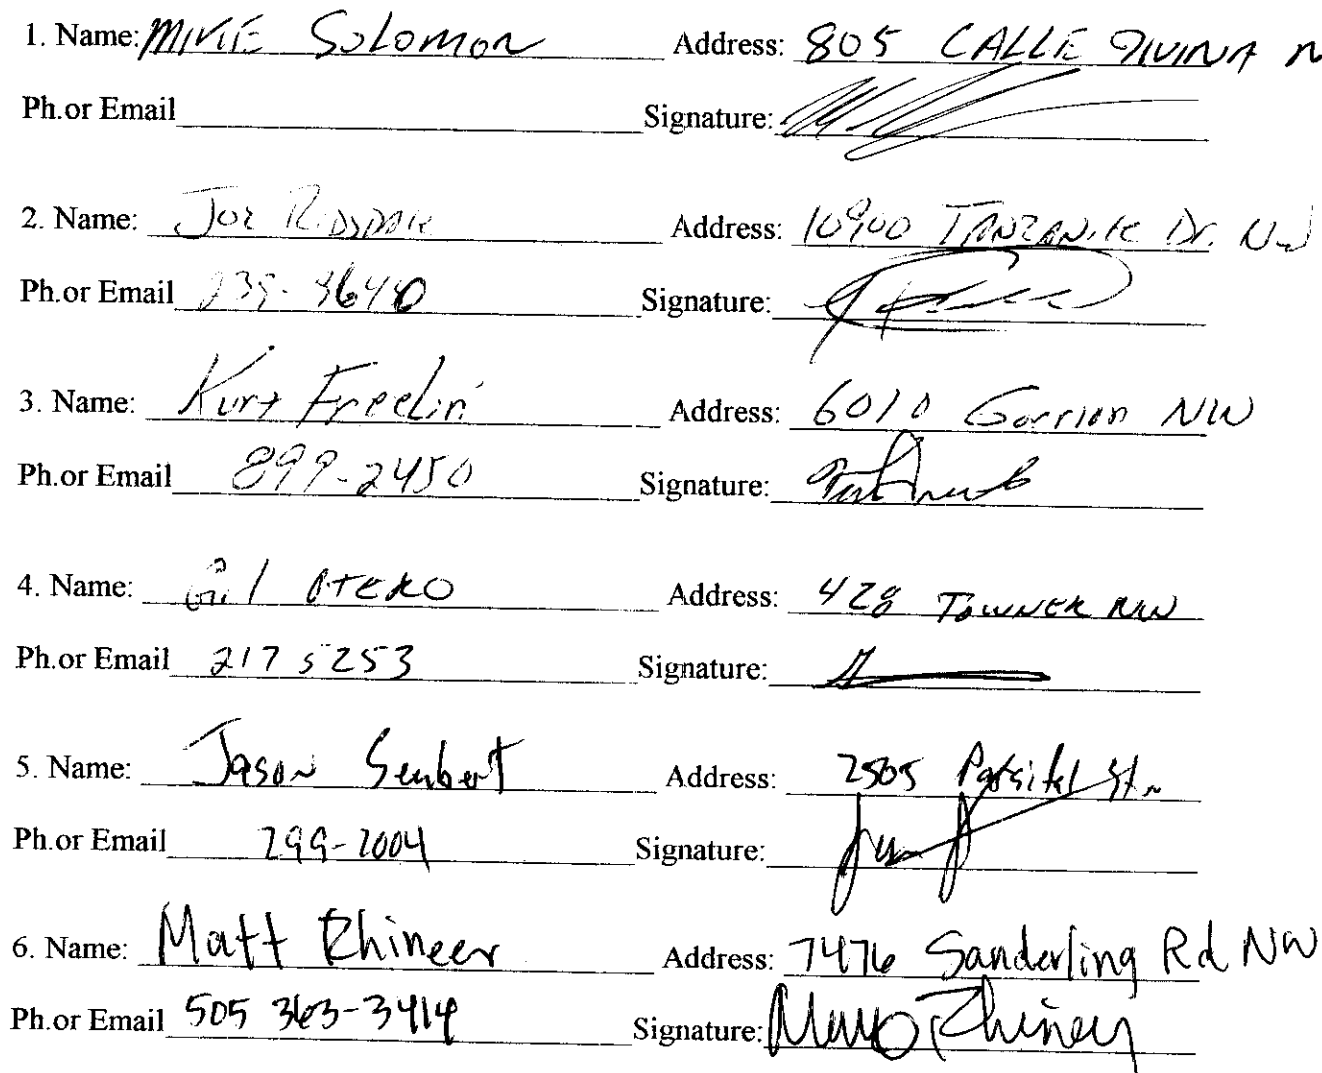 1. Name: MIKE SOLOMON Address: 805 CALLE DIVINA N
Ph.or Email Signature:
2. Name: Joe Ridsdale Address: 10900 TANZANITE Dr. NW
Ph.or Email 239-3640 Signature:
3. Name: Kurt Freelin Address: 6010 Gorrion NW
Ph.or Email 899-2450 Signature:
4. Name: Gil OTERO Address: 428 TOWNER NW
Ph.or Email 217 5253 Signature:
5. Name: Jason Seubert Address: 2505 St.
Ph.or Email 299-2004 Signature:
6. Name: Matt Rhineer Address: 7476 Sanderling Rd NW
Ph.or Email 505 363-3414 Signature: